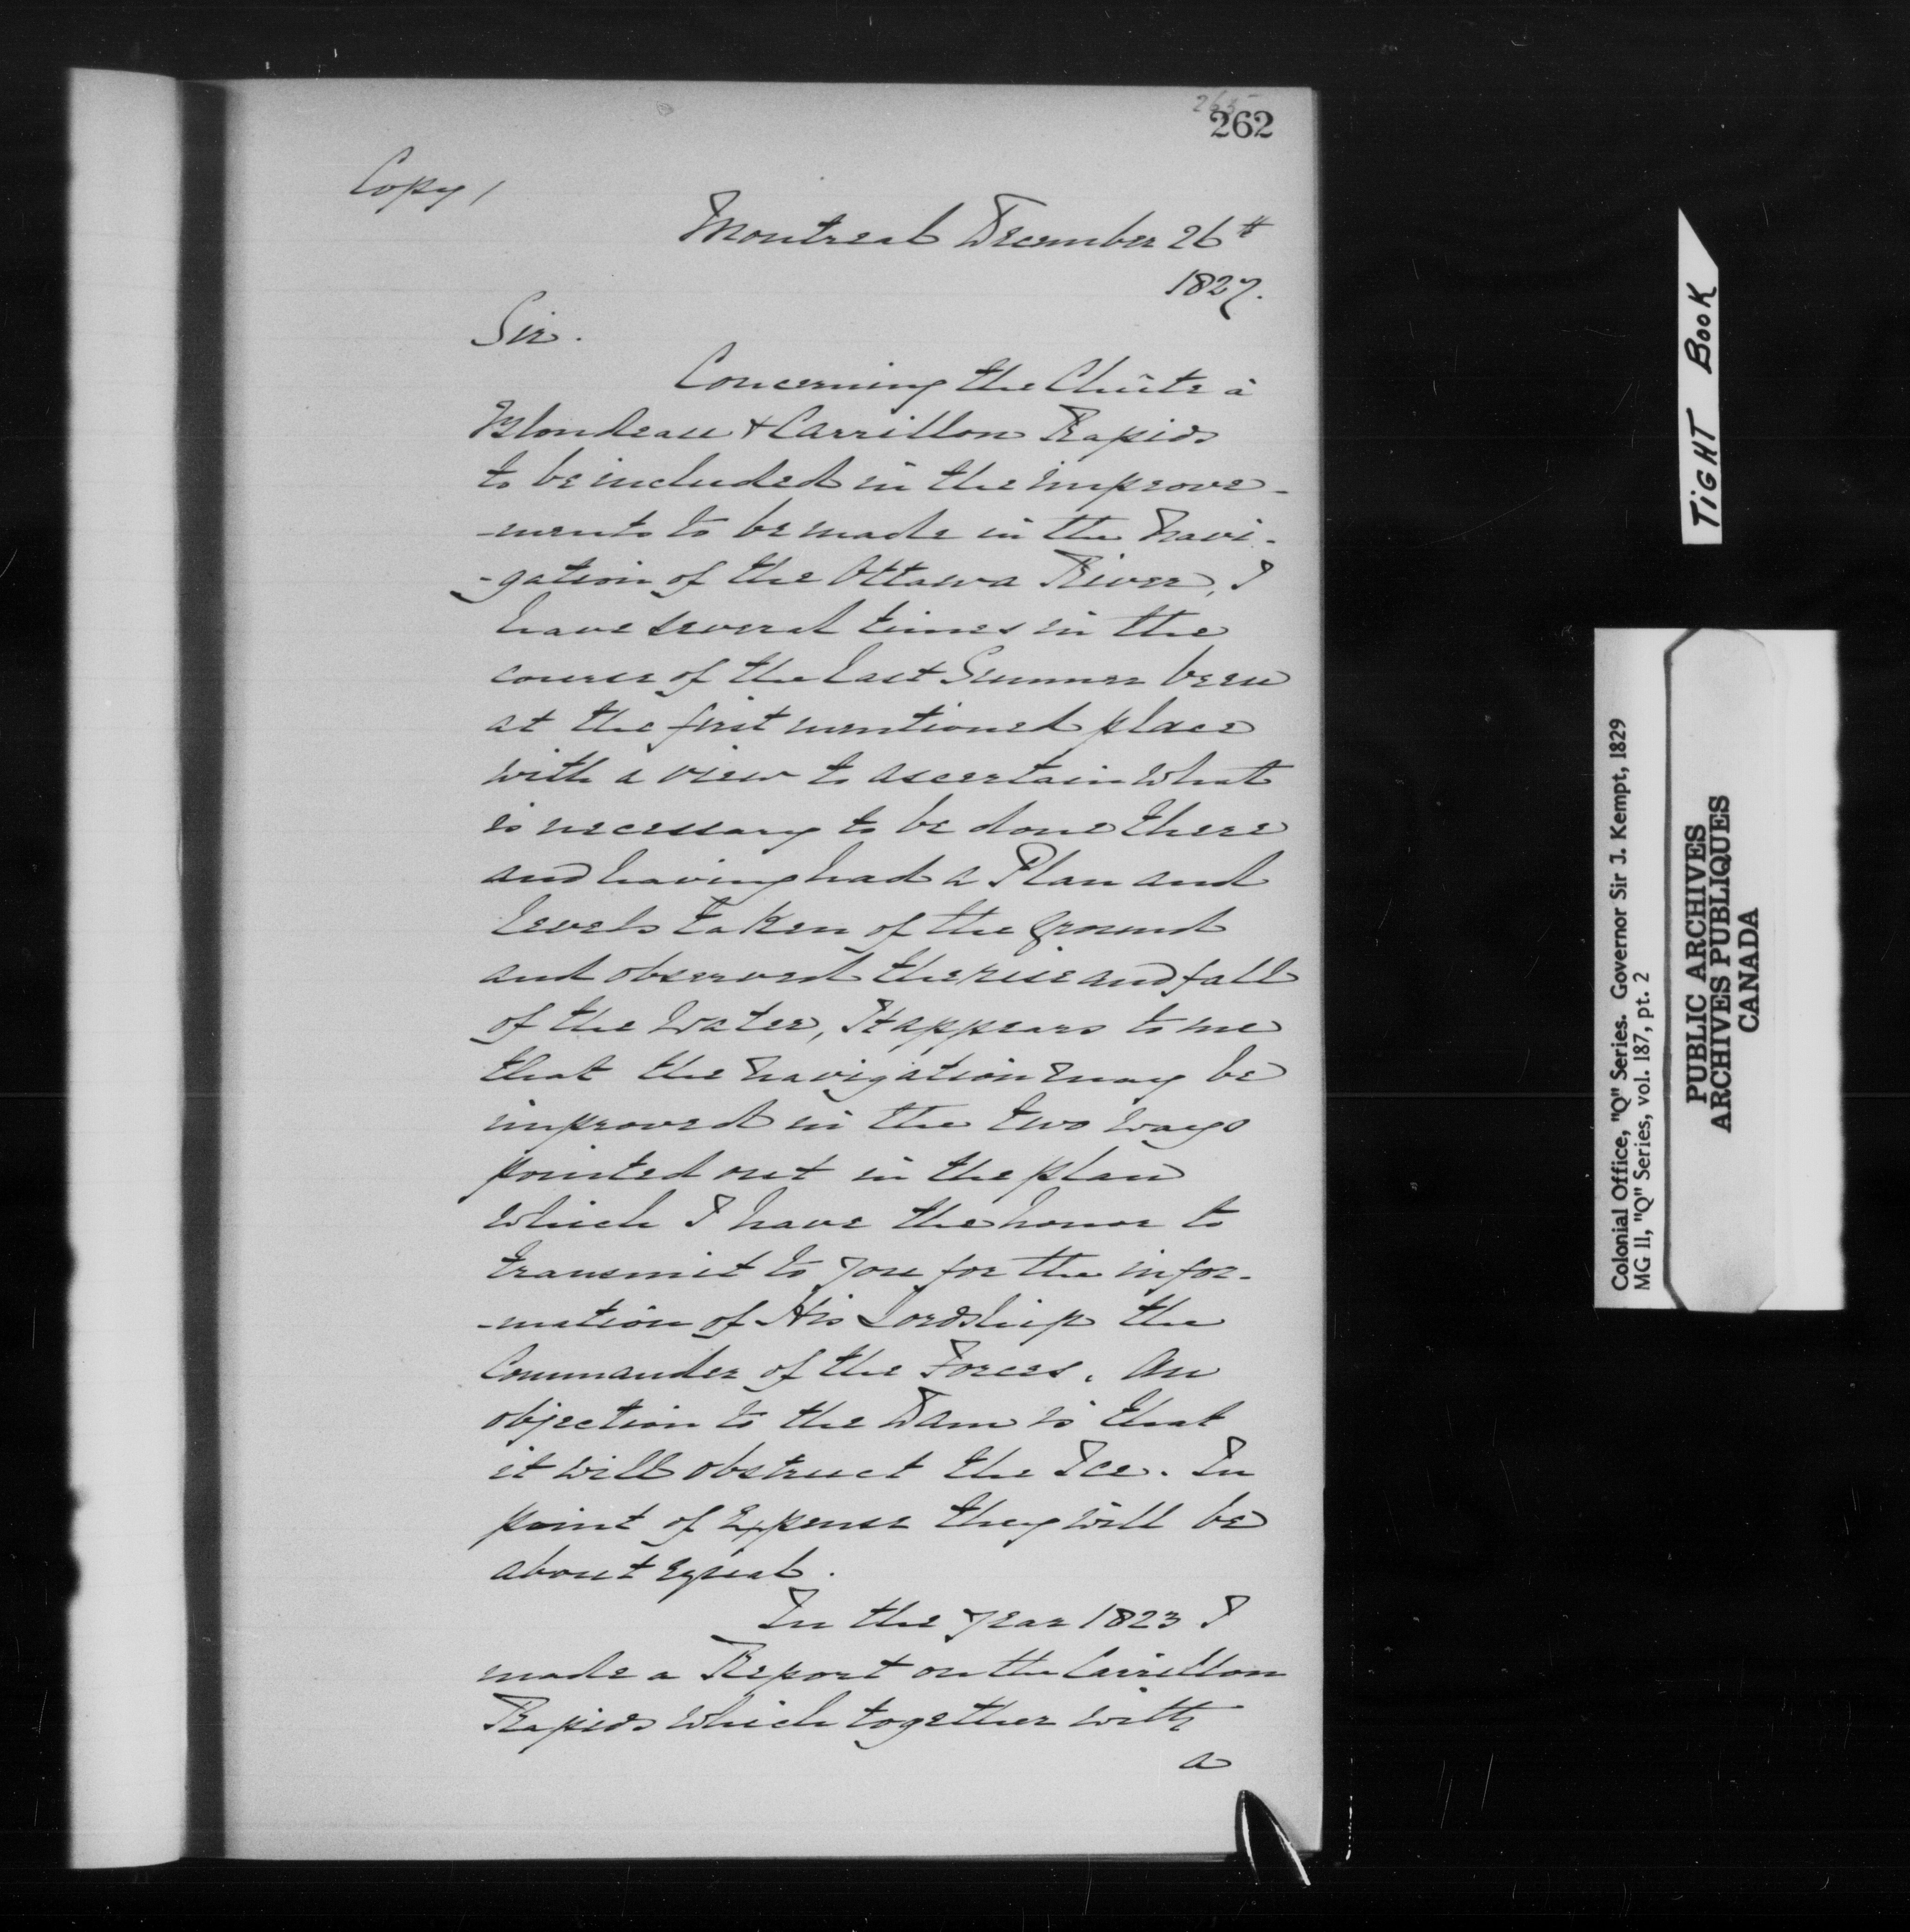 265
262
Copy /
Montreal December 26th
1827.
Sir.
Concerning the Chûte à
Blondeau & Carrillon Rapids
to be included in the improve-
-ments to be made in the Navi-
-gation of the Ottawa River, I
have several times in the
course of the last Summer been
at the first mentioned place
with a view to ascertain what
is necessary to be done there
and having had a Plan and
levels taken of the ground
and observed the rise and fall
of the Water, It appears to me
that the Navigation may be
improved in the two ways
pointed out in the plan
which I have the honor to
transmit to you for the infor-
-mation of His Lordship the
Commander of the Forces. An
objection to the Dam is that
it will obstruct the Ice. In
point of Expense they will be
about equal.
In the year 1823 I
made a Report on the Carrillon
Rapids which together with
a
TIGHT BOOK
Colonial Office, "Q" Series. Governor Sir J. Kempt, 1829
MG 11, "Q" Series, vol. 187, pt. 2
PUBLIC ARCHIVES
ARCHIVES PUBLIQUES
CANADA